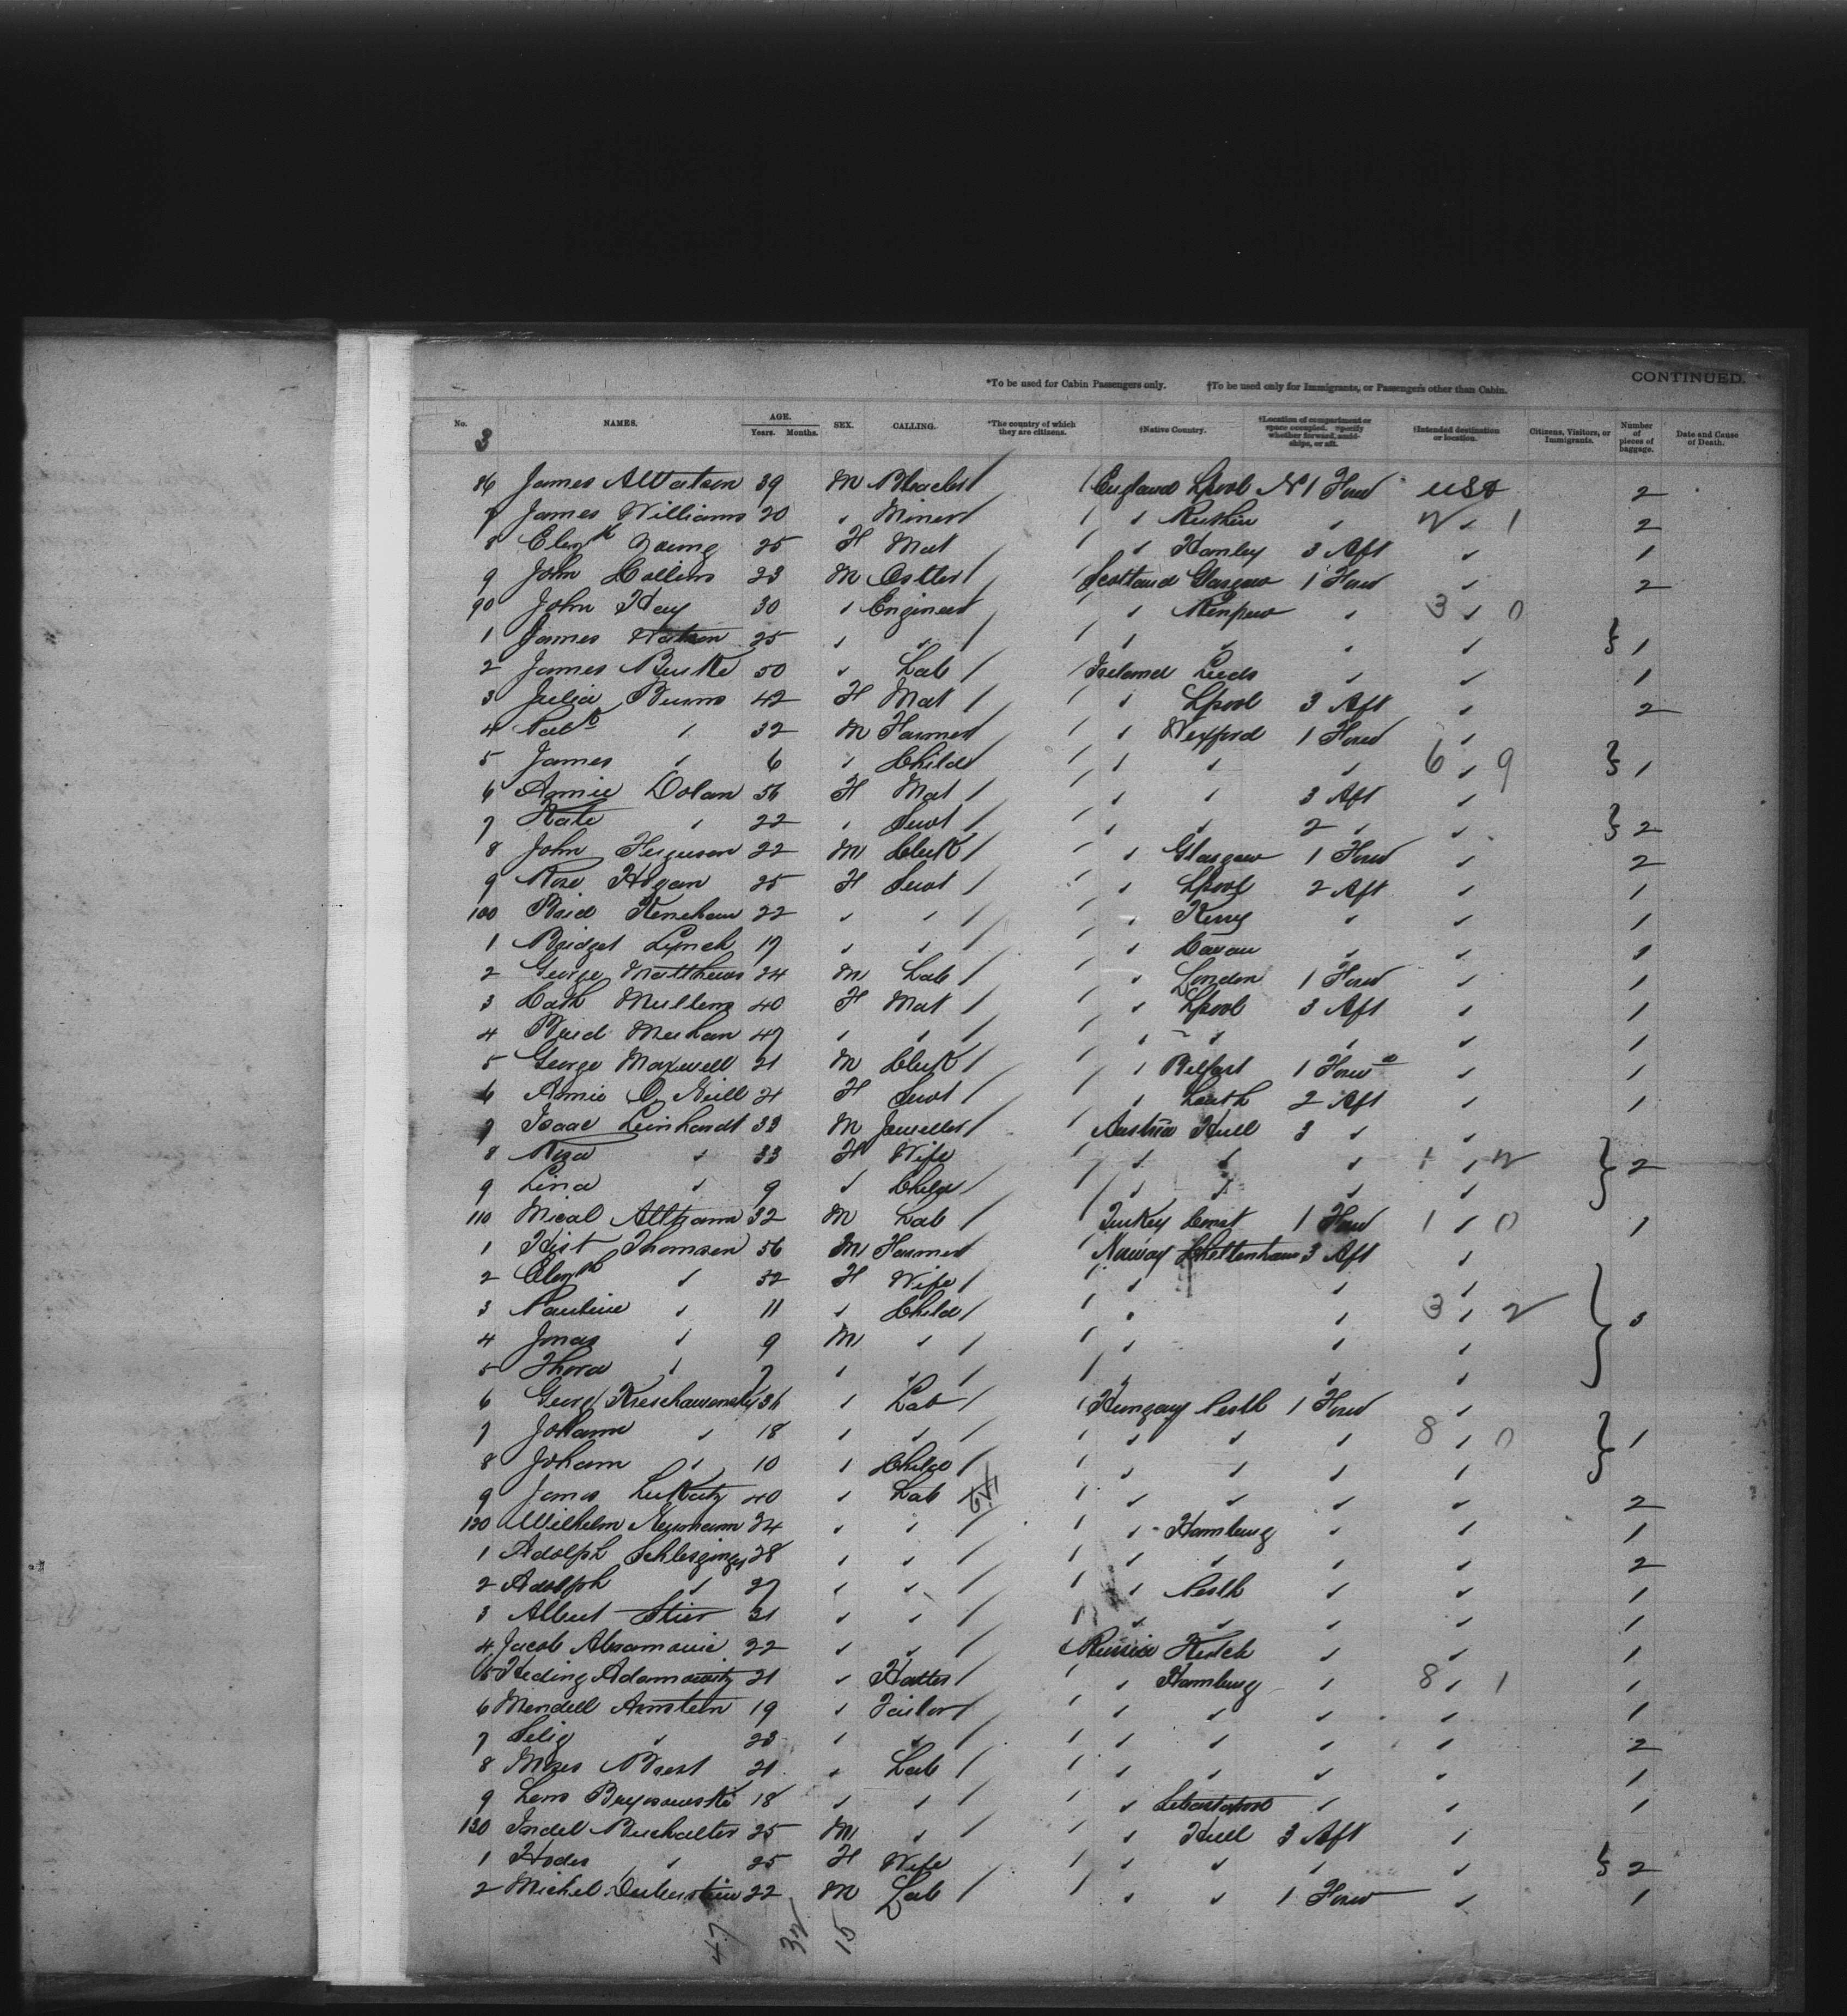 CONTINUED.
*To be used for Cabin Passengers only. †To be used only for Immigrants, or Passengers other than Cabin.
No. NAMES. AGE. Years. Months. SEX. CALLING. *The country of which they are citizens. †Native Country. †Location of compartment or space occupied. Specify whether forward, amidships, or aft. †Intended destination or location. Citizens, Visitors, or Immigrants. Number of pieces of baggage. Date and Cause of Death.
3
86 James A Watson 39 M England Lpool No 1 Forw USA 2
7 James Williams 20 " Miner " " 2
8 Elizth Young 25 F Mat " Hanley 3 Aft " 1
9 John Collins 23 M Ostler Scotland Glasgow 1 Forw " 2
90 John Hay 30 " Engineer " Renfrew " 3 " 0
1 James Watson 25 " " " " " " 1
2 James Burke 50 " Lab Ireland Leeds " " 1
3 Julia Burns 42 F Mat " Lpool 3 Aft " 2
4 Patk " 32 M Farmer " Wexford 1 Forw "
5 James " 6 " Child " " " 6 " 9 1
6 Annie Dolan 56 F Mat " " 3 Aft "
7 Kate " 22 " Servt " " 2 " " 2
8 John Ferguson 22 M Clerk " Glasgow 1 Forw " 2
9 Rose Hogan 25 F Servt " Lpool 2 Aft " 1
100 Brid 22 " " " Kerry " " 1
1 Bridget Lynch 19 " " " Cavan " " 1
2 George Matthews 24 M Lab " London 1 Forw " 1
3 Cath Mullens 40 F Mat " Lpool 3 Aft " 1
4 Brid Meehan 47 " " " " " " 1
5 George Maxwell 21 M Clerk " Belfast 1 Forwd " 1
6 Annie O'Neill 21 F Servt " Louth 2 Aft " 1
7 Isaac Leinhardt 33 M Jeweller Austria Hull 3 " "
8 Rosa " 33 F Wife " " " 1 " 2 2
9 Lina " 9 " Child " " " "
110 32 M Lab Turkey Const 1 Forw 1 " 0 1
1 Thomsen 56 M Farmer Norway Cheltenham 3 Aft "
2 Elizth " 32 F Wife " " "
3 Pauline " 11 " Child " " 3 " 2
4 Jonas " 9 M " " " "
5 Thora " 7 " " " " "
6 Georg 36 " Lab Hungary Pesth 1 Forw "
7 Johann " 18 " " " " " 8 " 0 1
8 Johann " 10 " Child " " " "
9 40 " Lab " " " " 2
120 Wilhelm Neumann 24 " " " Hamburg " " 1
1 Adolph Schlesinger 28 " " " " " " 2
2 Adolph " 27 " " " Pesth " " 1
3 Albert Stier 31 " " " " " " 1
4 Jacob 22 " " Russia " " 1
5 Adamowitz 21 " Hatter " Hamburg " 8 " 1 1
6 Mendell Arnstein 19 " Tailor " " " " 1
7 Selig " 23 " " " " " " 2
8 Moses 21 " Lab " " " " 1
9 18 " " " " " 1
130 25 M " " Hull 3 Aft "
1 " 25 F Wife " " " " 2
2 Michel 22 M Lab " " 1 Forw " 1
47 32 15